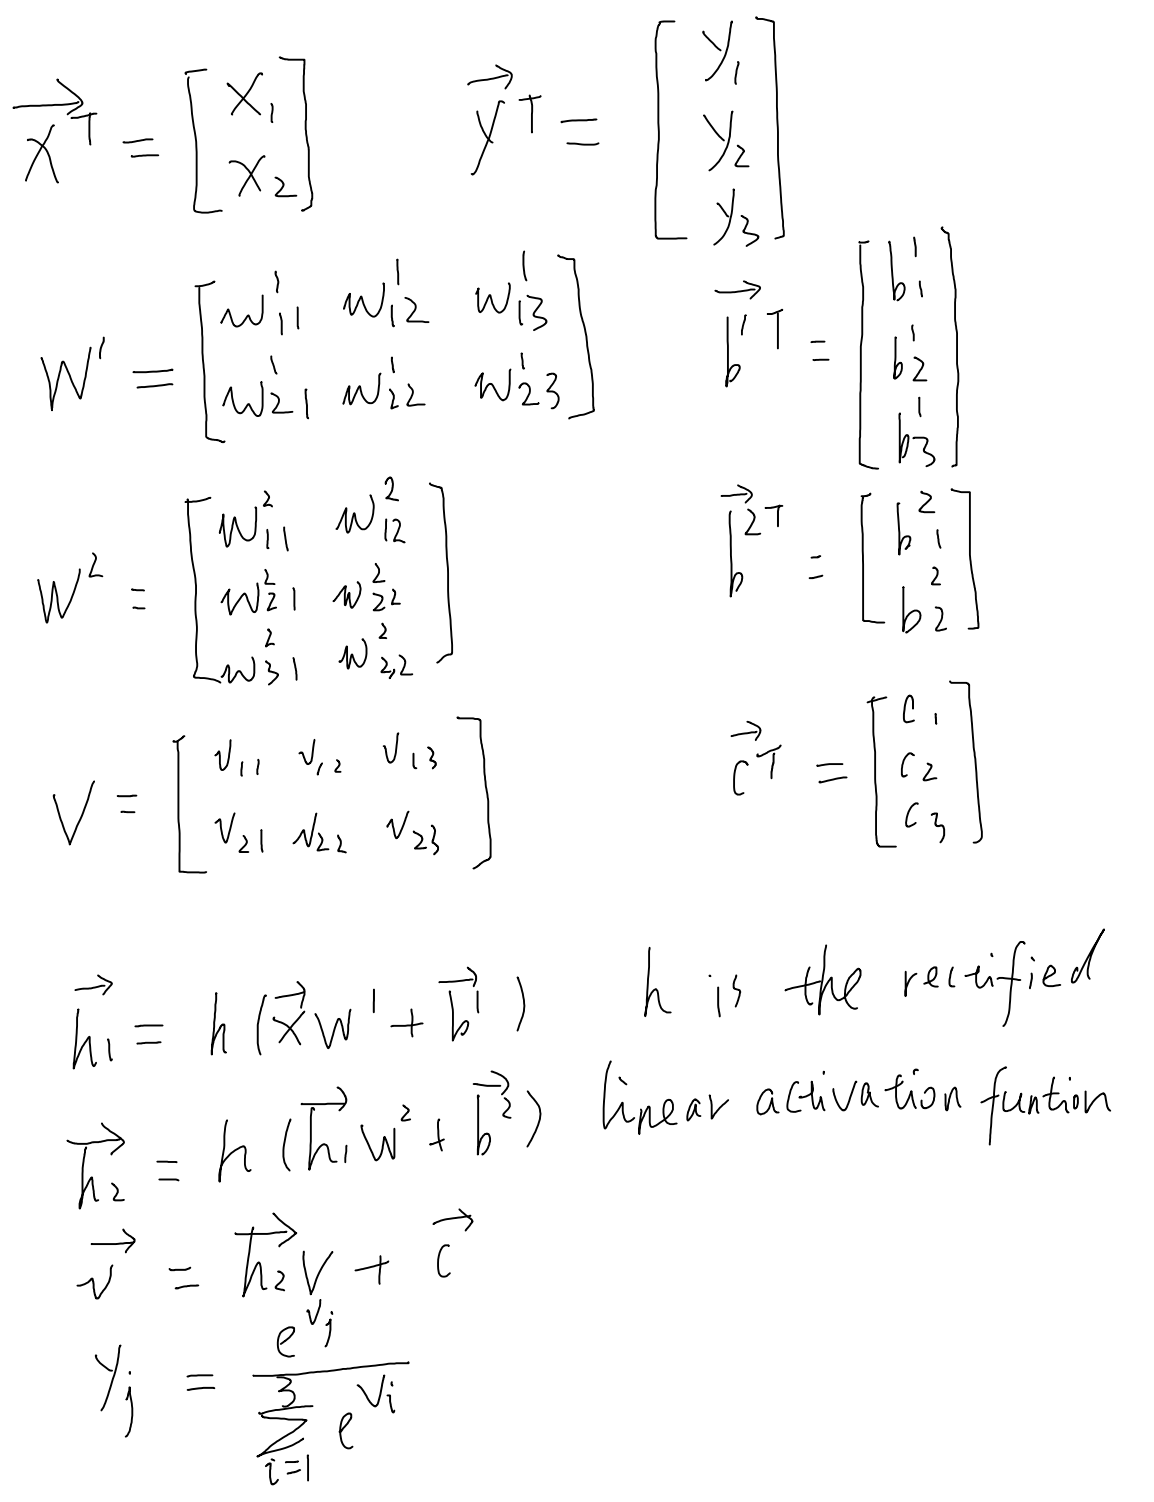 x⃗ᵀ = [x₁; x₂] y⃗ᵀ = [y₁; y₂; y₃]
W¹ = [w¹₁₁ w¹₁₂ w¹₁₃; w¹₂₁ w¹₂₂ w¹₂₃] b⃗¹ᵀ = [b¹₁; b¹₂; b¹₃]
W² = [w²₁₁ w²₁₂; w²₂₁ w²₂₂; w²₃₁ w²₂,₂] b⃗²ᵀ = [b²₁; b²₂]
V = [v₁₁ v₁₂ v₁₃; v₂₁ v₂₂ v₂₃] c⃗ᵀ = [c₁; c₂; c₃]
h⃗₁ = h(x⃗W¹ + b⃗¹) h is the rectified
h⃗₂ = h(h⃗₁W² + b⃗²) linear activation funtion
v⃗ = h⃗₂V + c⃗
yⱼ = e^{vⱼ} / ∑_{i=1}^{3} e^{vᵢ}